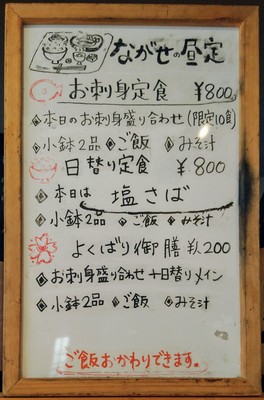 ながせの昼定
お刺身定食 ¥800
◈本日のお刺身盛り合わせ(限定10食)
◈小鉢2品 ◈ご飯 ◈みそ汁
日替り定食 ¥800
◈本日は 塩さば
◈小鉢2品 ◈ご飯 ◈みそ汁
よくばり御膳 ¥1,200
◈お刺身盛り合わせ+日替りメイン
◈小鉢2品 ◈ご飯 ◈みそ汁
ご飯おかわりできます。